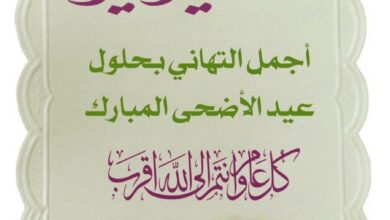 أجمل التهاني بحلول
عيد الأضحى المبارك
كل عام وانتم إلى الله اقرب